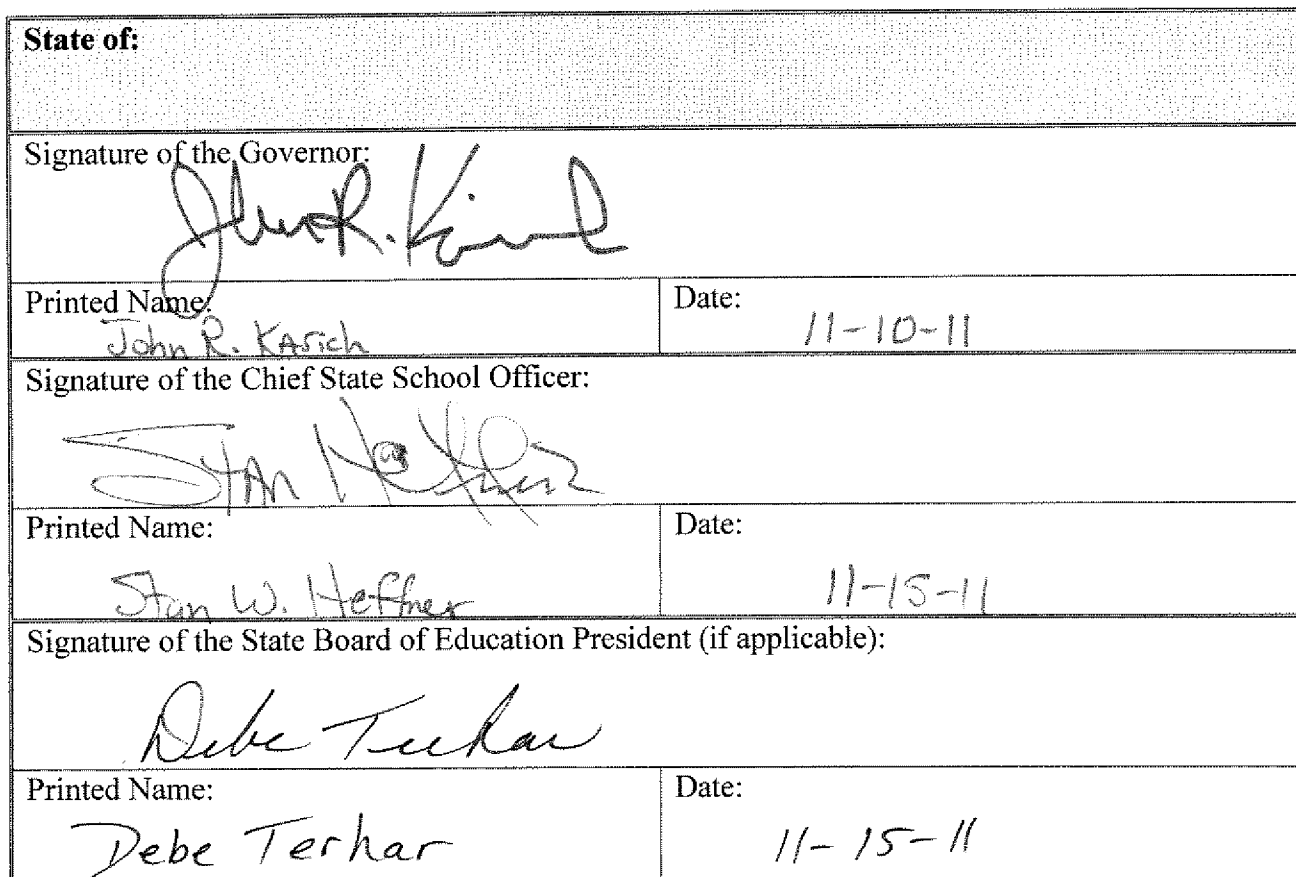 State of:
Signature of the Governor:
John R. Kasich
Printed Name:
John R. KAsich
Date:
11-10-11
Signature of the Chief State School Officer:
STAN Heffner
Printed Name:
Stan W. Heffner
Date:
11-15-11
Signature of the State Board of Education President (if applicable):
Debe Terhar
Printed Name:
Debe Terhar
Date:
11-15-11